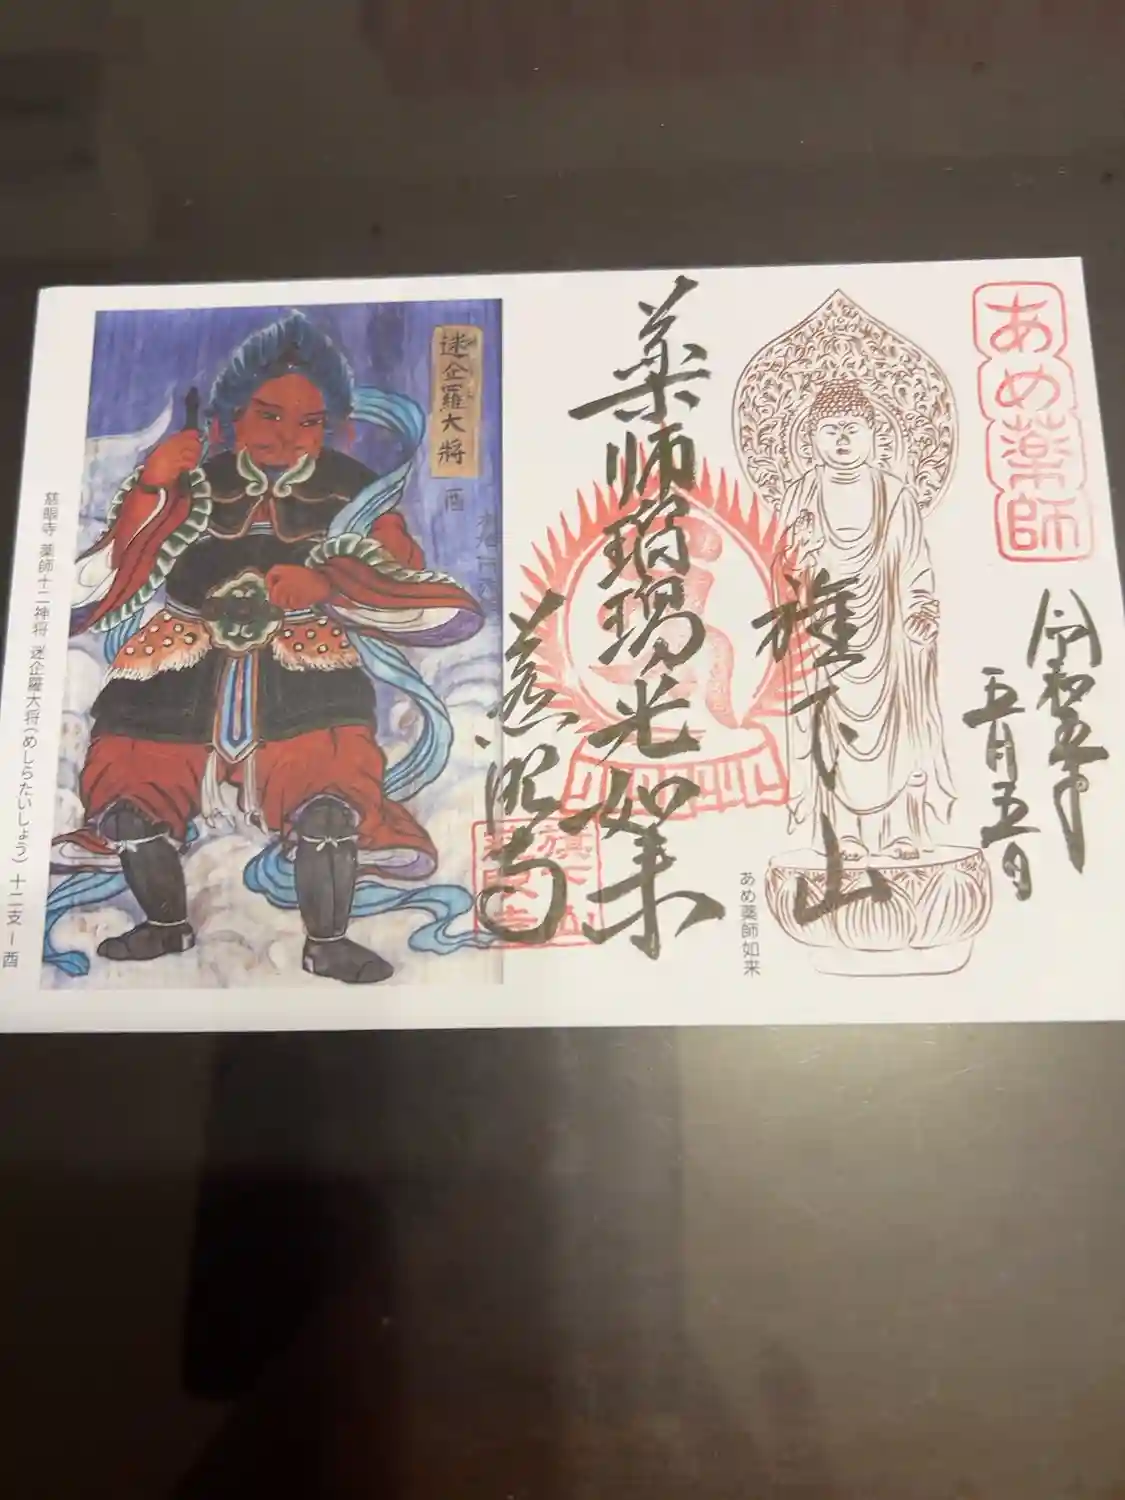 あめ薬師
令和五年
五月五日
旗下山
あめ薬師如来
薬師瑠璃光如来
慈眼寺
迷企羅大将
酉
慈眼寺 薬師十二神将 迷企羅大将(めしらたいしょう) 十二支ー酉